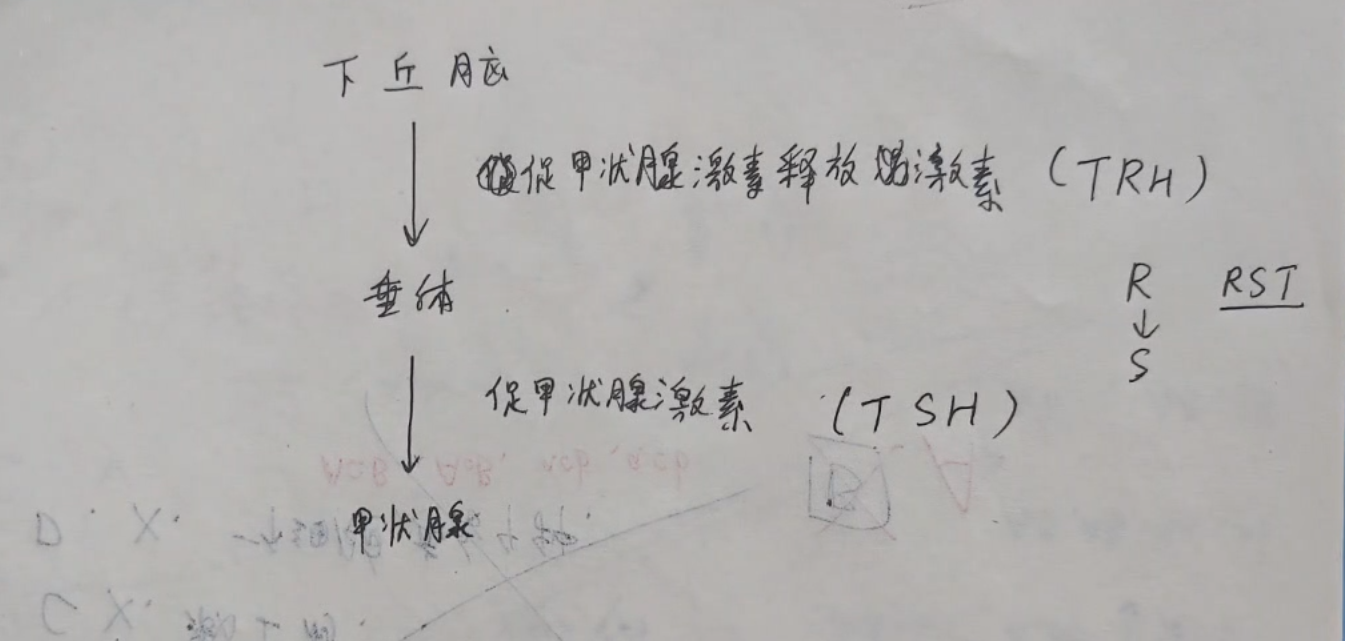 下丘脑
↓
促甲状腺激素释放激素 (TRH)
垂体
R RST
↓
S
↓
促甲状腺激素 (TSH)
甲状腺